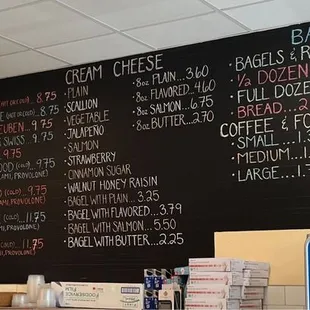 (NOT OR COLD) 8.75
8.75
REUBEN 9.75
SWISS 9.75
9.75
9.75
AMI, PROVOLONE)
(COLD) 9.75
AMI, PROVOLONE)
(COLD) 11.75
(COLD) 11.75
CREAM CHEESE
- PLAIN
- SCALLION
- VEGETABLE
- JALAPEÑO
- SALMON
- STRAWBERRY
- CINNAMON SUGAR
- WALNUT HONEY RAISIN
- BAGEL WITH PLAIN...3.25
- BAGEL WITH FLAVORED...3.79
- BAGEL WITH SALMON...5.50
- BAGEL WITH BUTTER...2.25
- 8oz PLAIN...3.60
- 8oz FLAVORED...4.60
- 8oz SALMON...6.75
- 8oz BUTTER...2.70
BA
BAGELS & R
1/2 DOZEN
FULL DOZE
BREAD...2
COFFEE & FO
SMALL...1.
MEDIUM...1
LARGE...1.